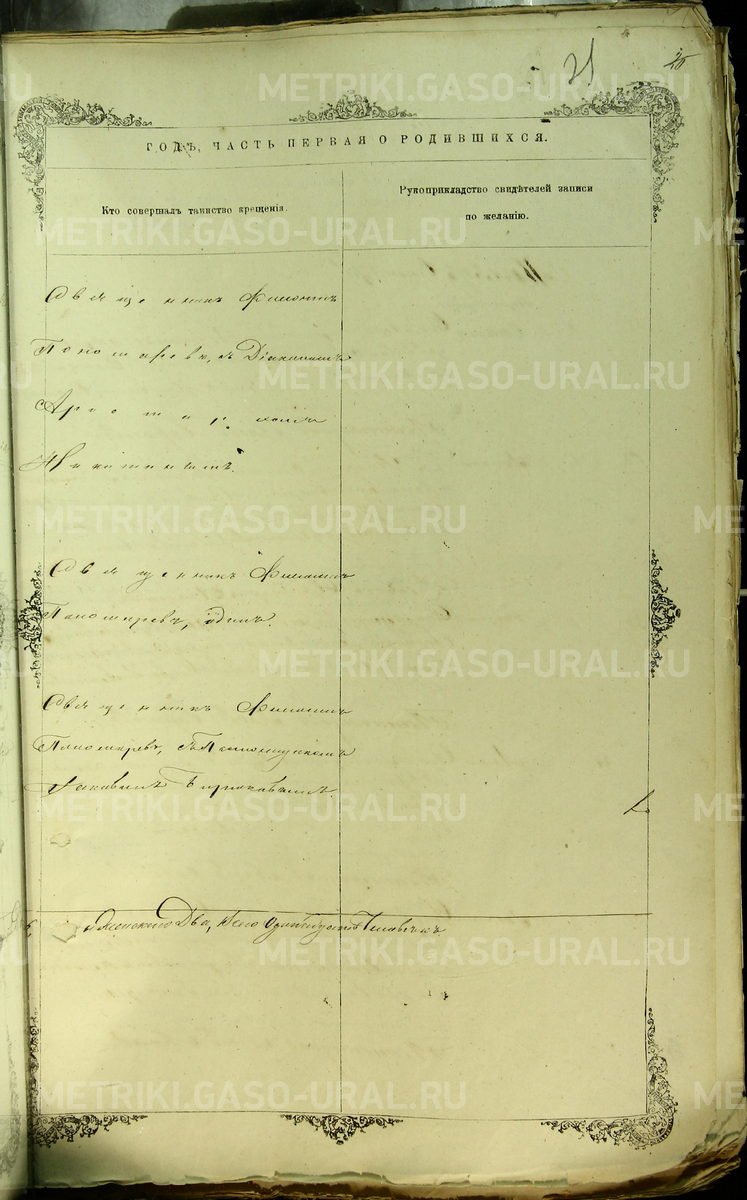 21
ГОДЪ, ЧАСТЬ ПЕРВАЯ О РОДИВШИХСЯ.
Кто совершалъ таинство крещенія.
Рукоприкладство свидѣтелей записи
по желанію.
Священникъ Филиппъ
Пономаревъ, съ Діакономъ
Аристархомъ
Никитинымъ.
Священникъ Филиппъ
Пономаревъ, одинъ.
Священникъ Филиппъ
Пономаревъ, съ
Іаковомъ Бирюковымъ.
Женского Два, Всего Человѣкъ
METRIKI.GASO-URAL.RU